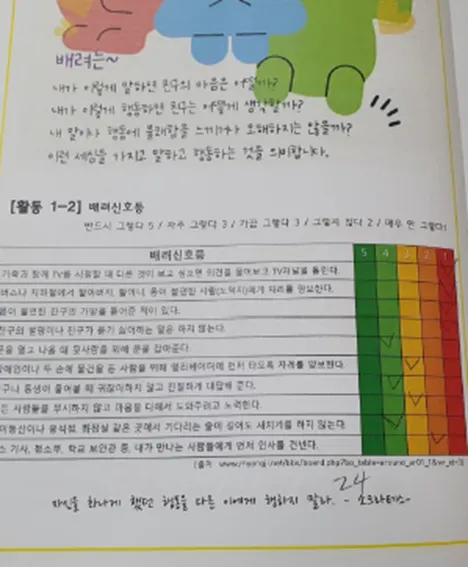 배려는~
내가 이렇게 말하면 친구의 마음은 어떨까?
내가 이렇게 행동하면 친구는 어떻게 생각할까?
내 말이나 행동에 불쾌함을 느끼거나 오해하지는 않을까?
이런 세심함을 가지고 말하고 행동하는 것을 의미합니다.
[활동 1-2] 배려신호등
반드시 그렇다 5 / 자주 그렇다 3 / 가끔 그렇다 3 / 그렇지 않다 2 / 매우 안 그렇다1
배려신호등 5 4 3 2 1
가족과 함께 TV를 시청할 때 다른 것이 보고 싶으면 의견을 물어보고 TV채널을 돌린다.
버스나 지하철에서 할아버지, 할머니, 몸이 불편한 사람(노약자)에게 자리를 양보한다.
몸이 불편한 친구의 가방을 들어준 적이 있다.
친구의 별명이나 친구가 듣기 싫어하는 말은 하지 않는다.
문을 열고 나올 때 뒷사람을 위해 문을 잡아준다.
장애인이나 두 손에 물건을 든 사람을 위해 엘리베이터에 먼저 타도록 자리를 양보한다.
친구나 동생이 물어볼 때 귀찮아하지 않고 친절하게 대답해 준다.
든 사람들을 무시하지 않고 마음을 다해서 도와주려고 노력한다.
이동산이나 음식점, 화장실 같은 곳에서 기다리는 줄이 길어도 새치기를 하지 않는다.
스 기사, 청소부, 학교 보안관 등, 내가 만나는 사람들에게 먼저 인사를 건넨다.
(출처
24
자신을 화나게 했던 행동을 다른 이에게 행하지 말라. - 소크라테스-